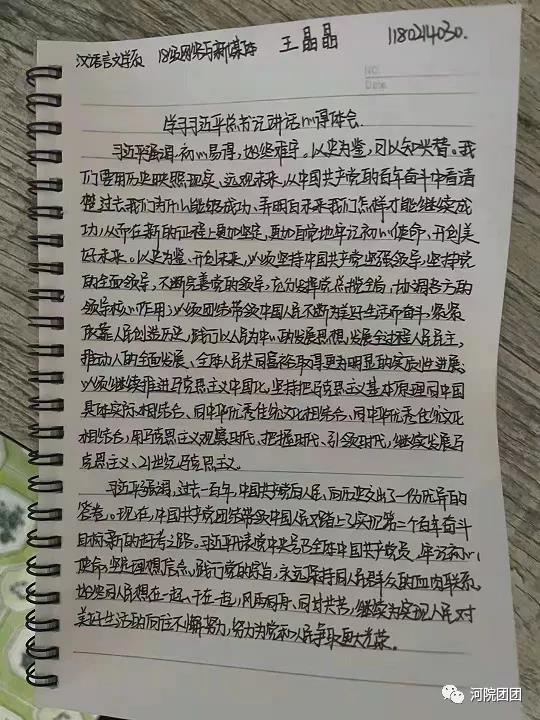 汉语言文学系 18级网络与新媒体 王晶晶 1180214030.
NO.
Date.
学习习近平总书记讲话心得体会
习近平强调,初心易得,始终难守。以史为鉴,可以知兴替。我
们要用历史映照现实、远观未来,从中国共产党的百年奋斗中看清
楚过去我们为什么能够成功、弄明白未来我们怎样才能继续成
功,从而在新的征程上更加坚定、更加自觉地牢记初心使命、开创美
好未来。以史为鉴、开创未来,必须坚持中国共产党坚强领导,坚持党
的全面领导,不断完善党的领导,充分发挥党总揽全局、协调各方的
领导核心作用;必须团结带领中国人民不断为美好生活而奋斗,紧紧
依靠人民创造历史,践行以人民为中心的发展思想,发展全过程人民民主,
推动人的全面发展、全体人民共同富裕取得更为明显的实质性进展;
必须继续推进马克思主义中国化,坚持把马克思主义基本原理同中国
具体实际相结合、同中华优秀传统文化相结合、同中华优秀传统文化
相结合,用马克思主义观察时代、把握时代、引领时代,继续发展马
克思主义、21世纪马克思主义.
习近平强调,过去一百年,中国共产党向人民、向历史交出了一份优异的
答卷。现在,中国共产党团结带领中国人民又踏上了实现第二个百年奋斗
目标新的赶考之路。习近平代表党中央号召全体中国共产党员,牢记初心
使命,坚定理想信念,践行党的宗旨,永远保持同人民群众的血肉联系,
始终同人民想在一起、干在一起,风雨同舟、同甘共苦,继续为实现人民对
美好生活的向往不懈努力,努力为党和人民争取更大光荣。
河院团团